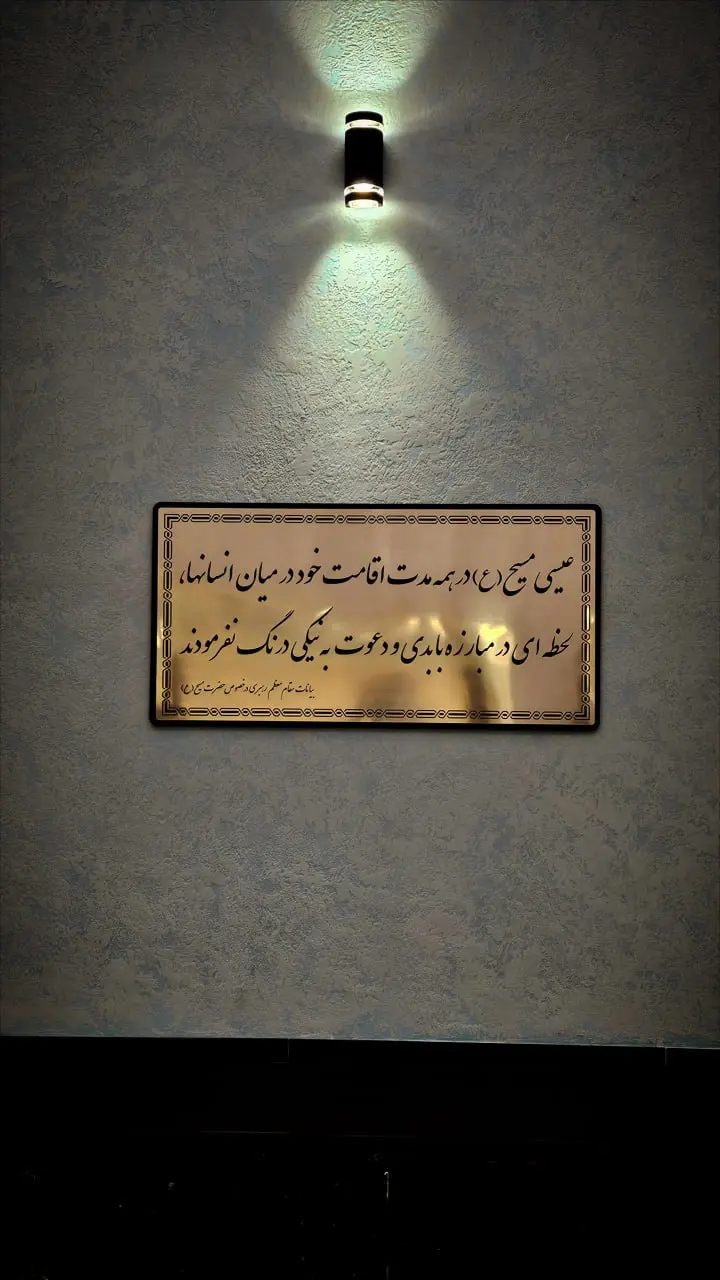 عیسی مسیح (ع) در همه مدت اقامت خود در میان انسانها،
لحظه ای در مبارزه بابدی و دعوت به نیکی درنگ نفرمودند
بیانات مقام معظم رهبری در خصوص حضرت مسیح (ع)